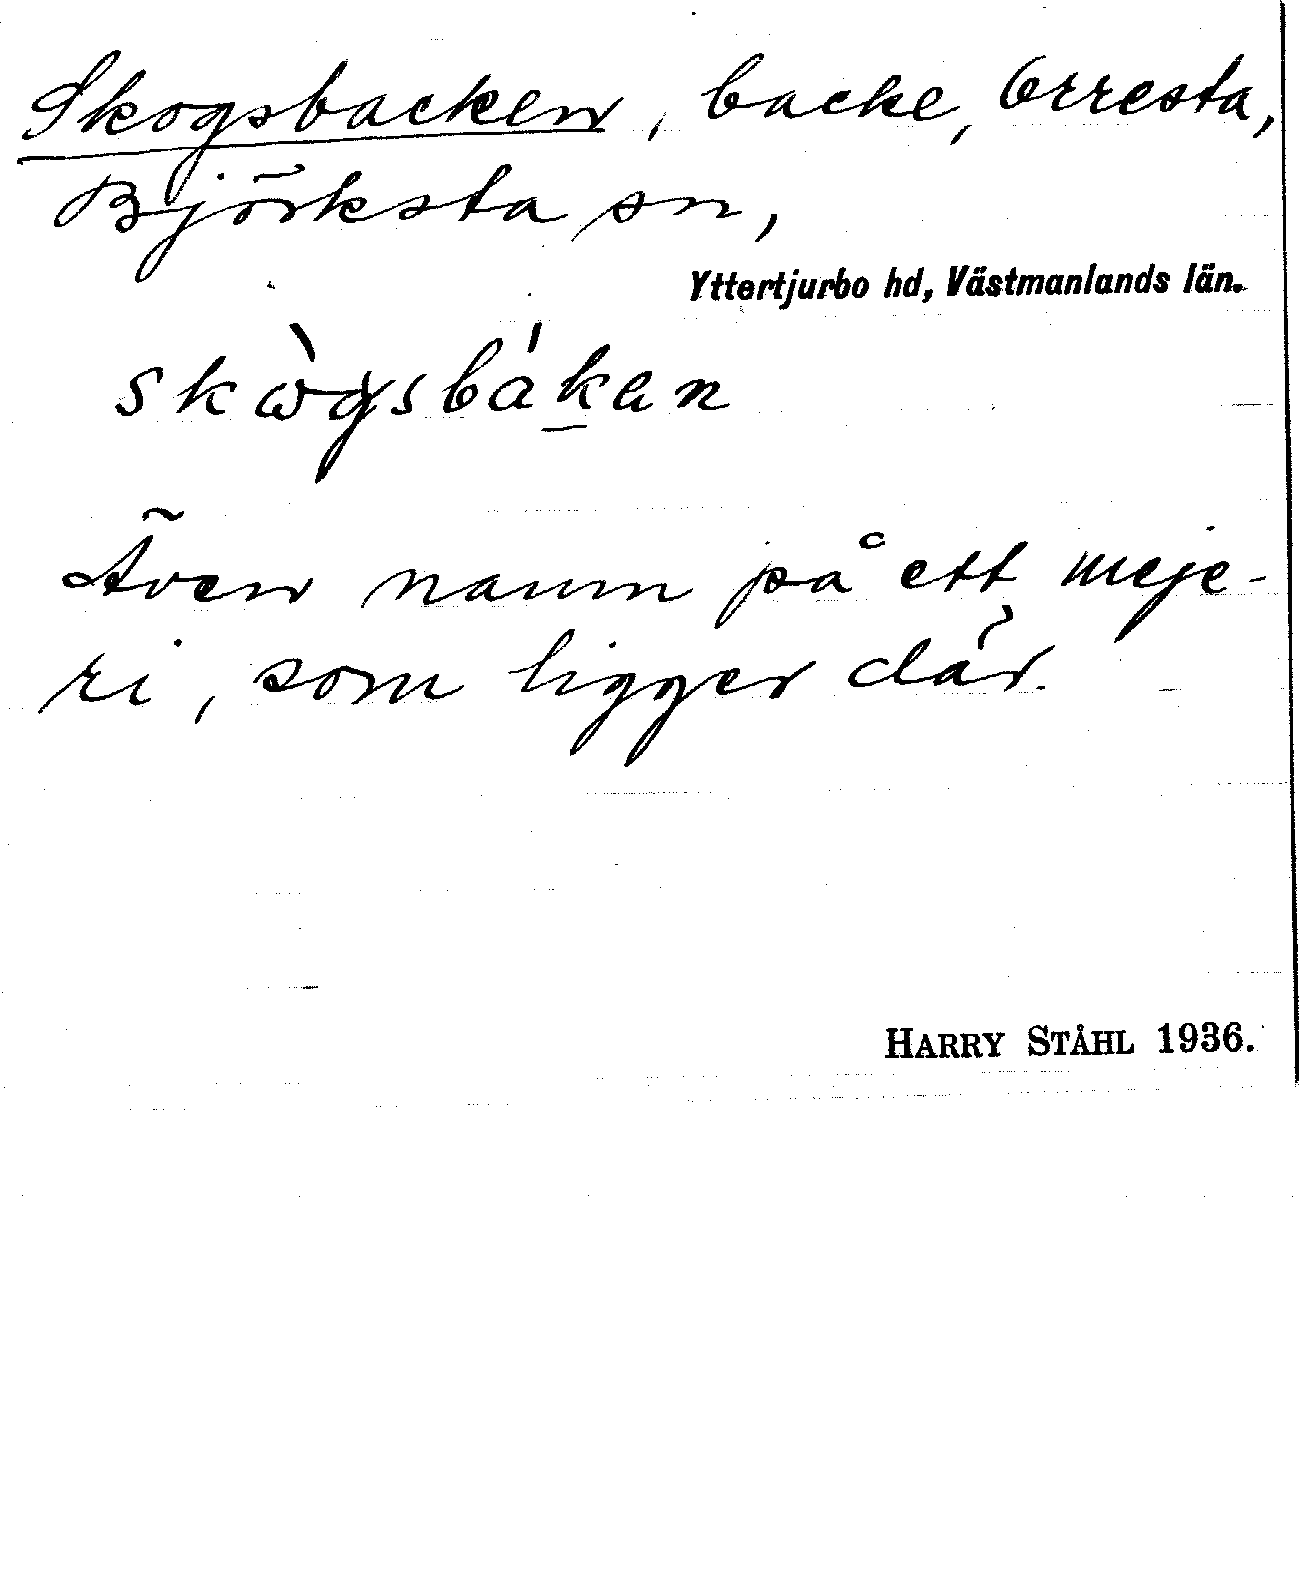 Skogsbacken, backe, Orresta,
Björksta sn,
Yttertjurbo hd, Västmanlands län.
skὼgsbákan
Även namn på ett meje-
ri, som ligger där.
HARRY STÅHL 1936.